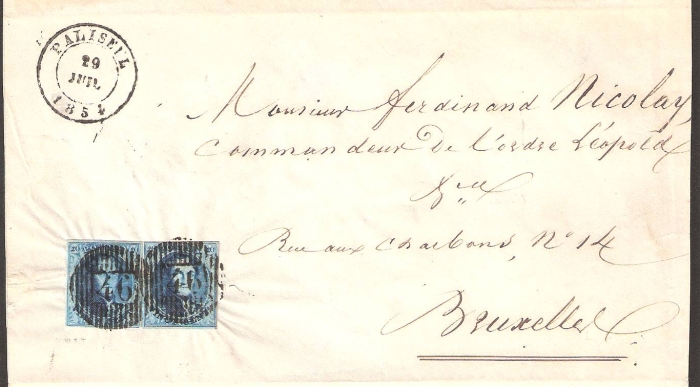 PALISEUL
29
JUIL
1854
Monsieur Ferdinand Nicolay
Commandeur De l'ordre Léopold
Rue aux charbons, N° 14
Bruxelles
20 20
46 46